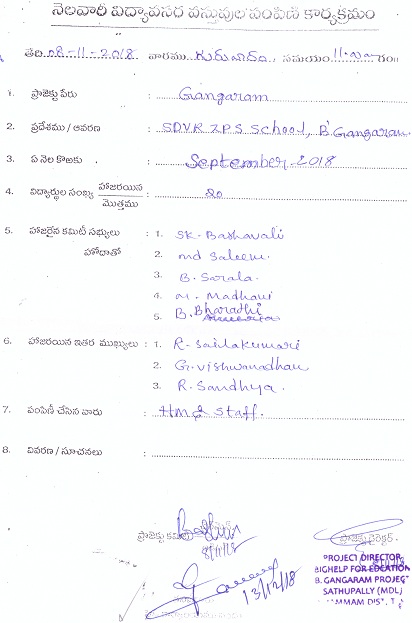 నెలవారీ విద్యావసర వస్తువుల పంపిణీ కార్యక్రమం
తేది 08-11-2018 వారము గురువారం, సమయం 11-00 గం॥
1. ప్రాజెక్టు పేరు : Gangaram
2. ప్రదేశము / ఆవరణ : SDVR ZPS School, B.Gangaram
3. ఏ నెల కొఱకు : September-2018
4. విద్యార్థుల సంఖ్య హాజరయిన / మొత్తము : 20
5. హాజరైన కమిటీ సభ్యులు : 1. SK. Bashavali
హోదాతో 2. md saleem.
3. B. Sarala.
4. M. Madhavi
5. B. Bharathi
6. హాజరయిన ఇతర ముఖ్యులు : 1. R. Sailakumari
2. G. vishwanadham
3. R. Sandhya.
7. పంపిణీ చేసిన వారు : HM & Staff.
8. వివరణ / సూచనలు :
ప్రాజెక్టు కమిటీ ప్రాజెక్టు డైరెక్టర్
8/11/18
PROJECT DIRECTOR
BIGHELP FOR EDCATION
B. GANGARAM PROJECT
SATHUPALLY (MDL)
13/12/18